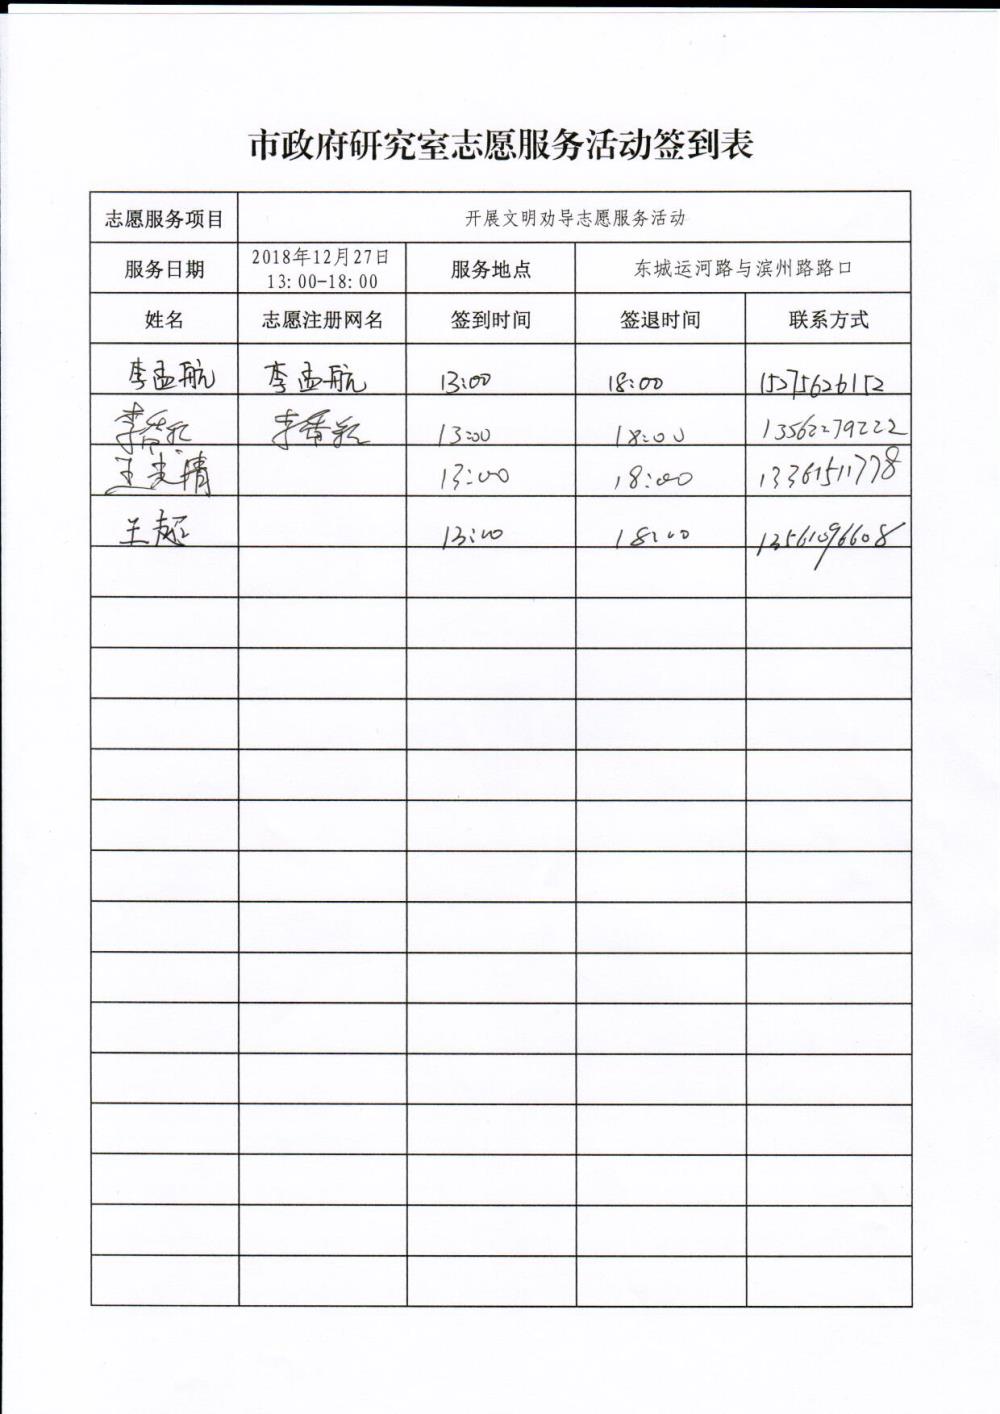 市政府研究室志愿服务活动签到表
志愿服务项目 开展文明劝导志愿服务活动
服务日期 2018年12月27日 13:00-18:00 服务地点 东城运河路与滨州路路口
姓名 志愿注册网名 签到时间 签退时间 联系方式
李孟航 李孟航 13:00 18:00 15275626152
李 李 13:00 18:00 13562279222
王 13:00 18:00 13361511778
王超 13:00 18:00